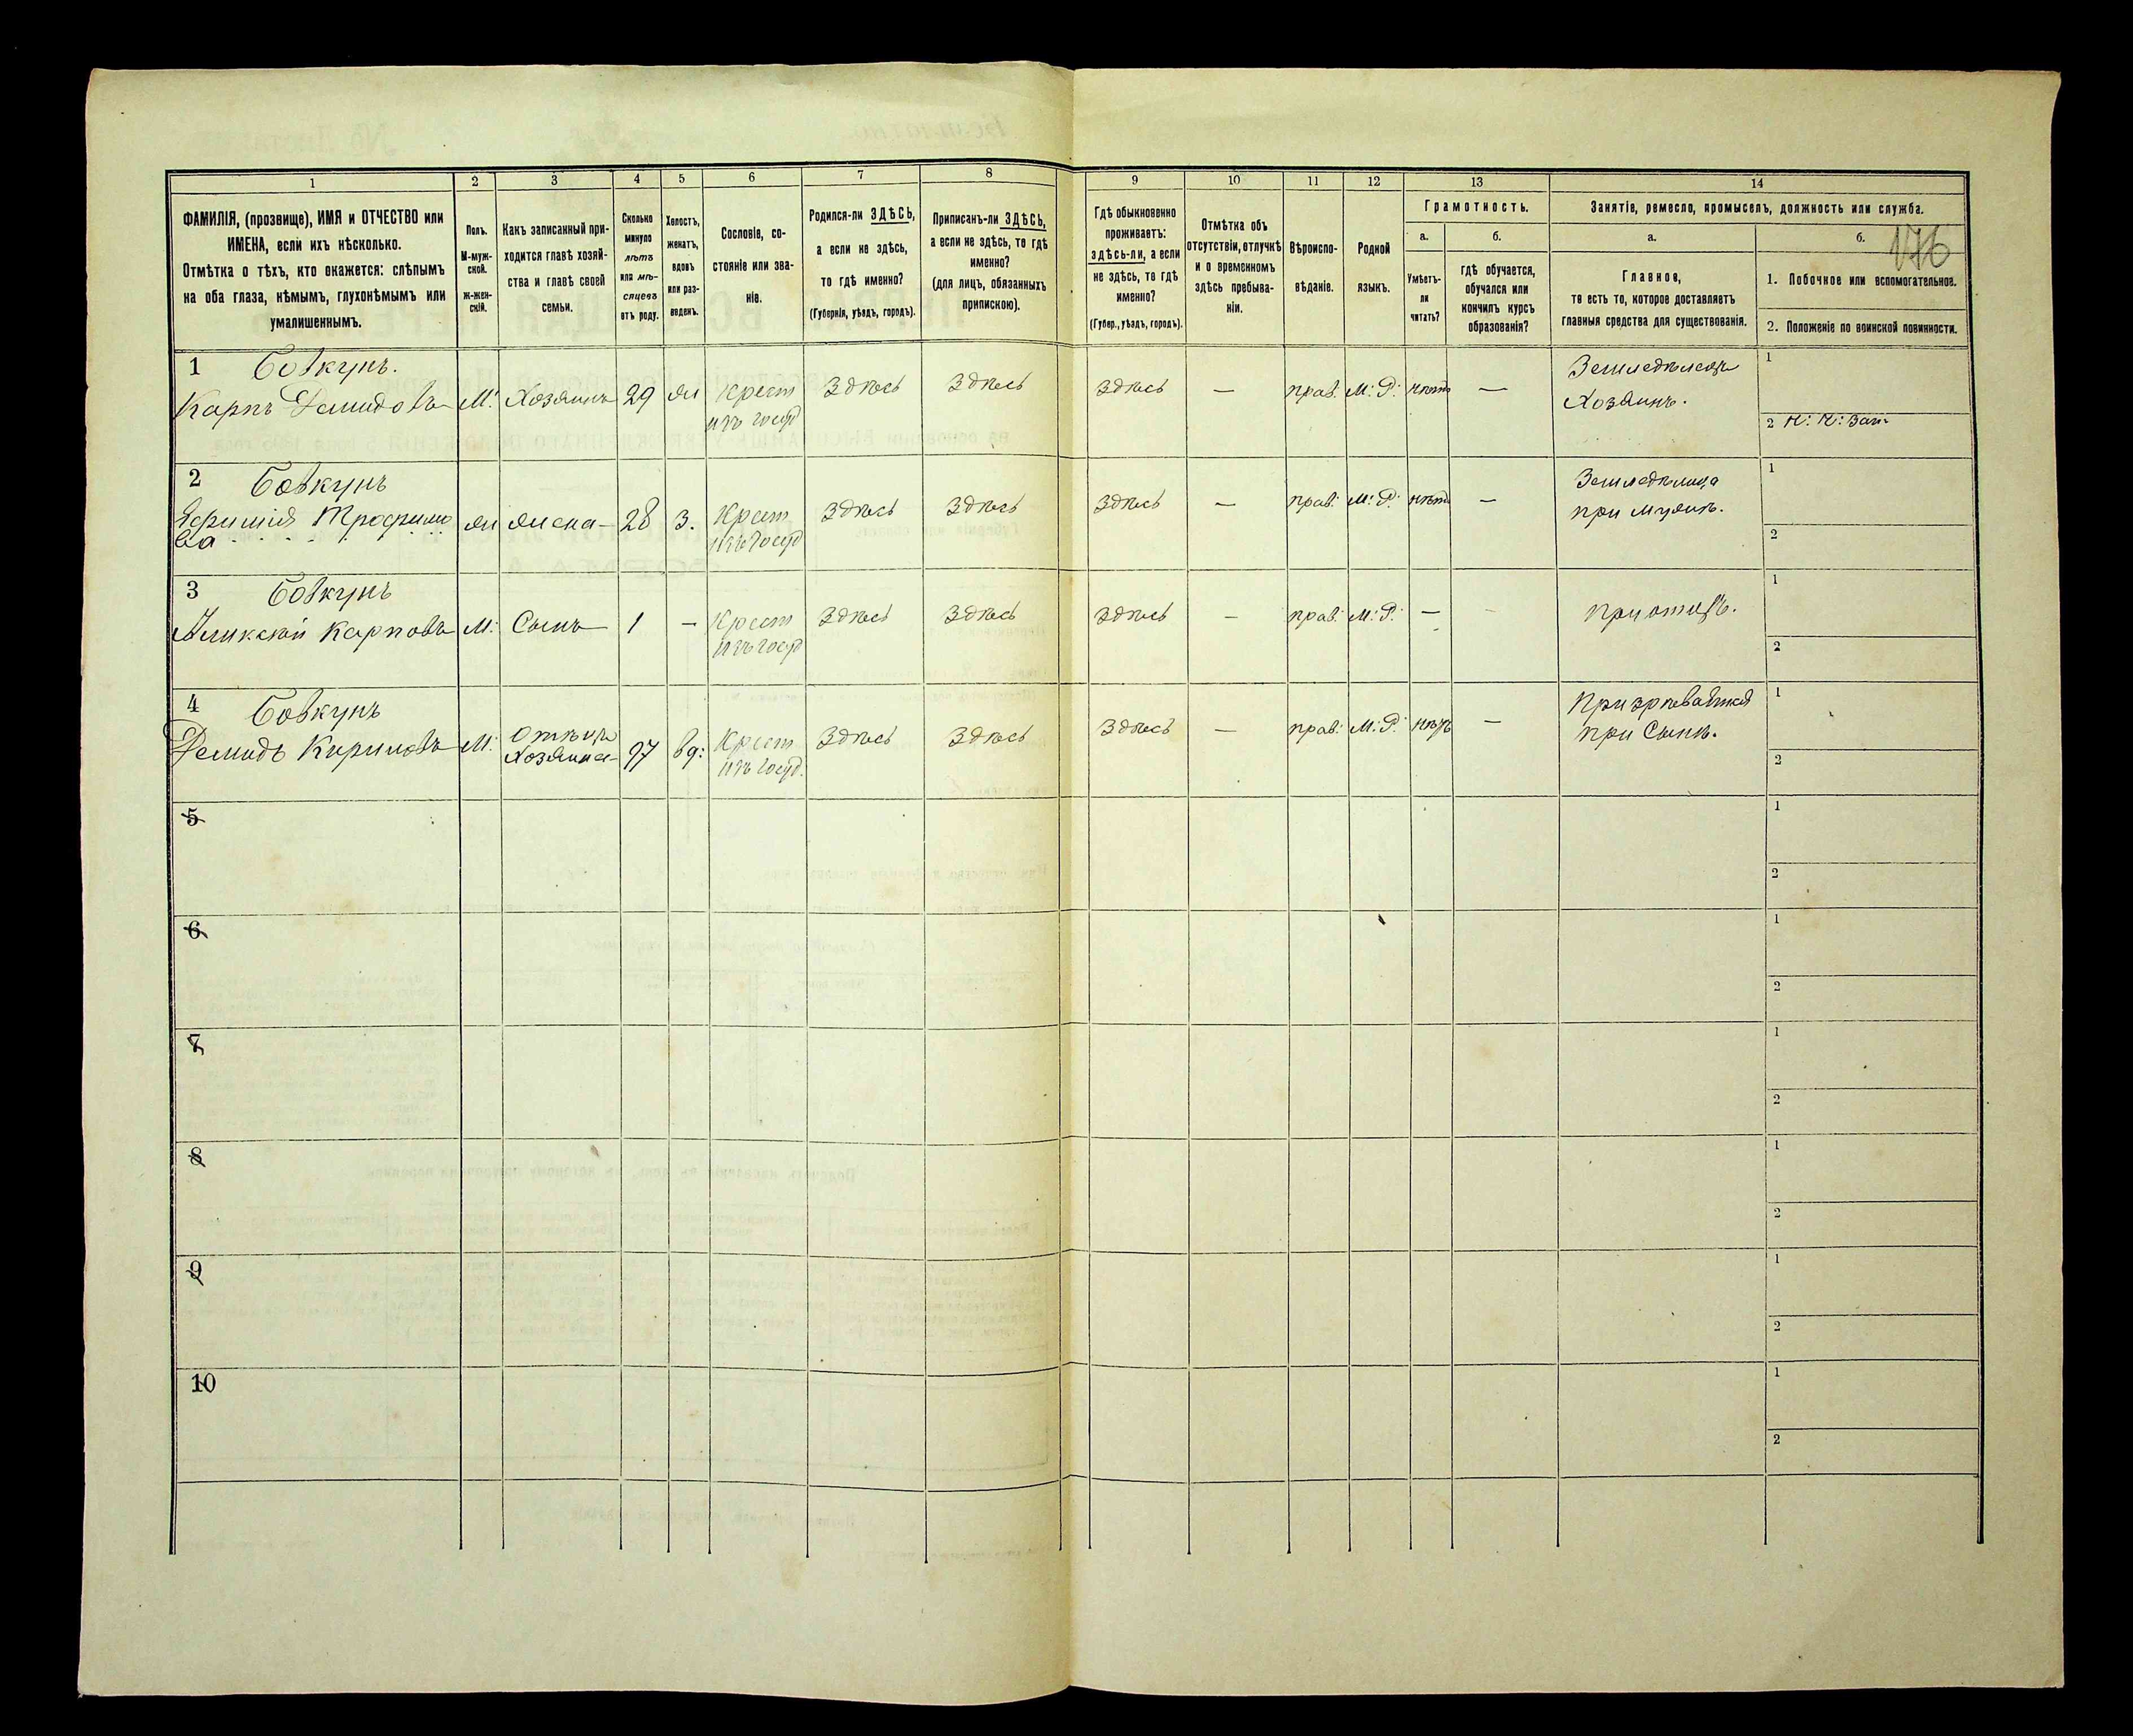 1 2 3 4 5 6 7 8 9 10 11 12 13 14
ФАМИЛІЯ, (прозвище), ИМЯ и ОТЧЕСТВО или
ИМЕНА, если ихъ нѣсколько.
Отмѣтка о тѣхъ, кто окажется: слѣпымъ
на оба глаза, нѣмымъ, глухонѣмымъ или
умалишеннымъ.
Полъ.
М-муж-
ской.
Ж-жен-
скій.
Какъ записанный при-
ходится главѣ хозяй-
ства и главѣ своей
семьи.
Сколько
минуло
лѣтъ
или мѣ-
сяцевъ
отъ роду.
Холостъ,
женатъ,
вдовъ
или раз-
веденъ.
Сословіе, со-
стояніе или зва-
ніе.
Родился-ли ЗДѢСЬ,
а если не здѣсь,
то гдѣ именно?
(Губернія, уѣздъ, городъ).
Приписанъ-ли ЗДѢСЬ,
а если не здѣсь, то гдѣ
именно?
(для лицъ, обязанныхъ
припискою).
Гдѣ обыкновенно
проживаетъ:
здѣсь-ли, а если
не здѣсь, то гдѣ
именно?
(Губер., уѣздъ, городъ).
Отмѣтка объ
отсутствіи, отлучкѣ
и о временномъ
здѣсь пребыва-
ніи.
Вѣроиспо-
вѣданіе.
Родной
языкъ.
Грамотность.
а.
Умѣетъ-
ли
читать?
б.
гдѣ обучается,
обучался или
кончилъ курсъ
образованія?
Занятіе, ремесло, промыселъ, должность или служба.
а.
Главное,
то есть то, которое доставляетъ
главныя средства для существованія.
б.
176
1. Побочное или вспомогательное.
2. Положеніе по воинской повинности.
1 Бовкунъ.
Карпъ Демидовъ М. Хозяинъ 29 ж Крест Здѣсь Здѣсь Здѣсь — прав. М. Р. нѣтъ — Земледѣлецъ 1
изъ госуд Хозяинъ. 2
2 Бовкунъ
Ефимія Трофимо ж жена 28 З. Крест Здѣсь Здѣсь Здѣсь — прав. М. Р. нѣтъ — Земледѣлица 1
ва изъ госуд при мужѣ. 2
3 Бовкунъ
Аликсѣй Карповъ М. Сынъ 1 — Крест Здѣсь Здѣсь Здѣсь — прав. М. Р. — — при отцѣ. 1
изъ госуд 2
4 Бовкунъ
Демидъ Кириловъ М. Отецъ вд. Крест Здѣсь Здѣсь Здѣсь — прав. М. Р. нѣтъ — 1
Хозяина изъ госуд. при Сынѣ. 2
5 1
2
6 1
2
7 1
2
8 1
2
9 1
2
10 1
2